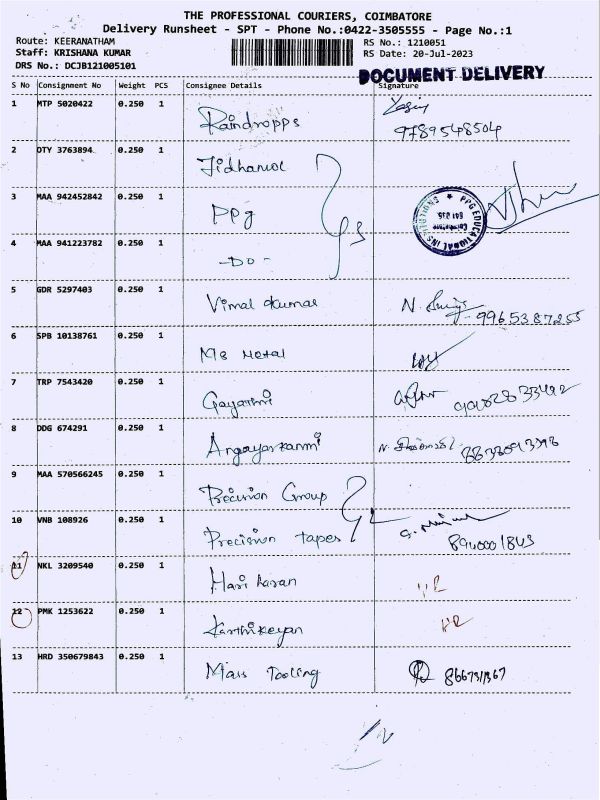 THE PROFESSIONAL COURIERS, COIMBATORE
Delivery Runsheet - SPT - Phone No.:0422-3505555 - Page No.:1
Route: KEERANATHAM RS No.: 1210051
Staff: KRISHANA KUMAR RS Date: 20-Jul-2023
DRS No.: DCJB121005101 DOCUMENT DELIVERY
S No Consignment No Weight PCS Consignee Details Signature
1 MTP 5020422 0.250 1 Raindropps 9789548504
2 OTY 3763894 0.250 1
3 MAA 942452842 0.250 1 PPg PPG EDUCATIONAL INSTITUTIONS Coimbatore 641 035
4 MAA 941223782 0.250 1 -DO-
5 GDR 5297403 0.250 1 Vimal Kumar 9965387255
6 SPB 10138761 0.250 1 Ms Metal
7 TRP 7543420 0.250 1 Gayathri
8 DDG 674291 0.250 1 Angayarkanni
9 MAA 570566245 0.250 1 Precision Group
10 VNB 108926 0.250 1 Precision tapes
11 NKL 3209540 0.250 1 Hari haran
12 PMK 1253622 0.250 1 Karthikeyan HR
13 HRD 350679843 0.250 1 Mais Tooling